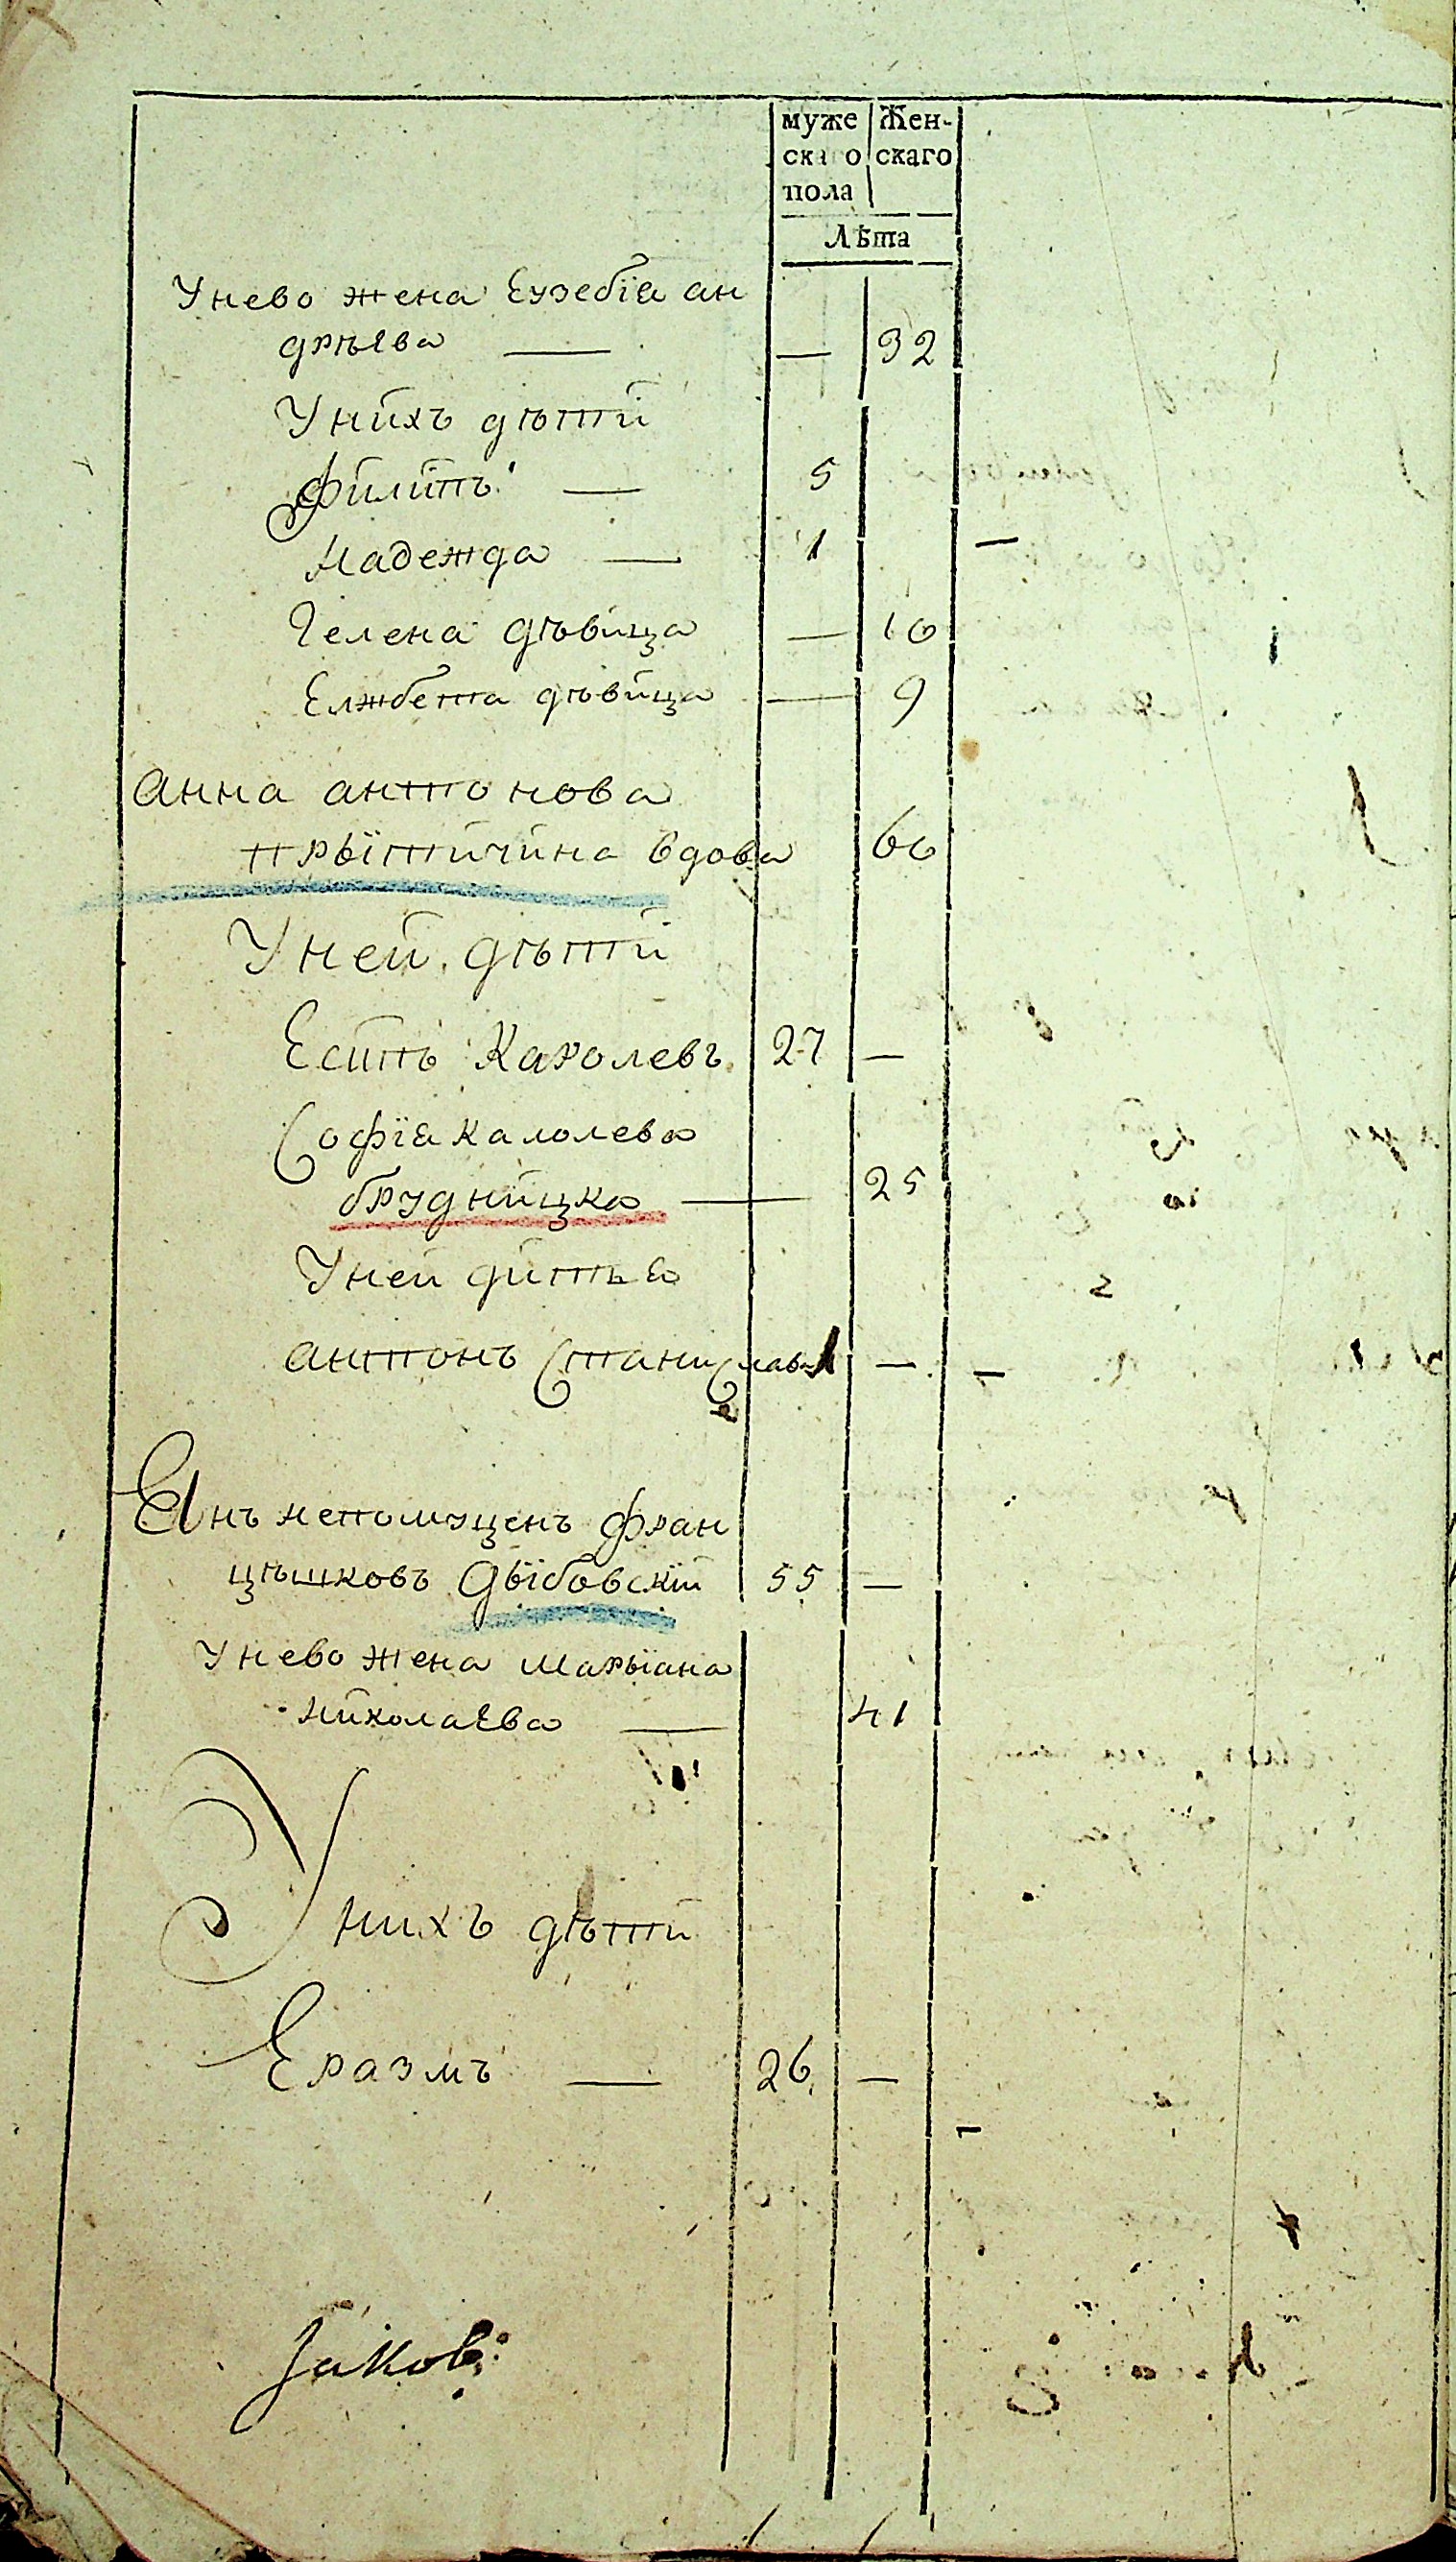 муже Жен-
скаго скаго
пола
Лѣта
Унево жена Еузебїа ан
дрѣева — — 32
Унихъ дѣтй
Филипъ — 5
Надежда — 1 —
Гелена дѣвица — 10
Елжбета дѣвица — 9
Анна антонова
прытйчина вдова 60
Уней дѣтй
Есипъ Каролевъ 27 —
Софїа Калолева
брудницка — 25
Уней дитьо
антонъ Станиславъ 1 — —
Еянъ непомуценъ фран
цѣшковъ дыбовскїй 55 —
Унево жена Марыана
николаева — 41
Унихъ дѣтй
Еразмъ — 26 —
Јаковъ